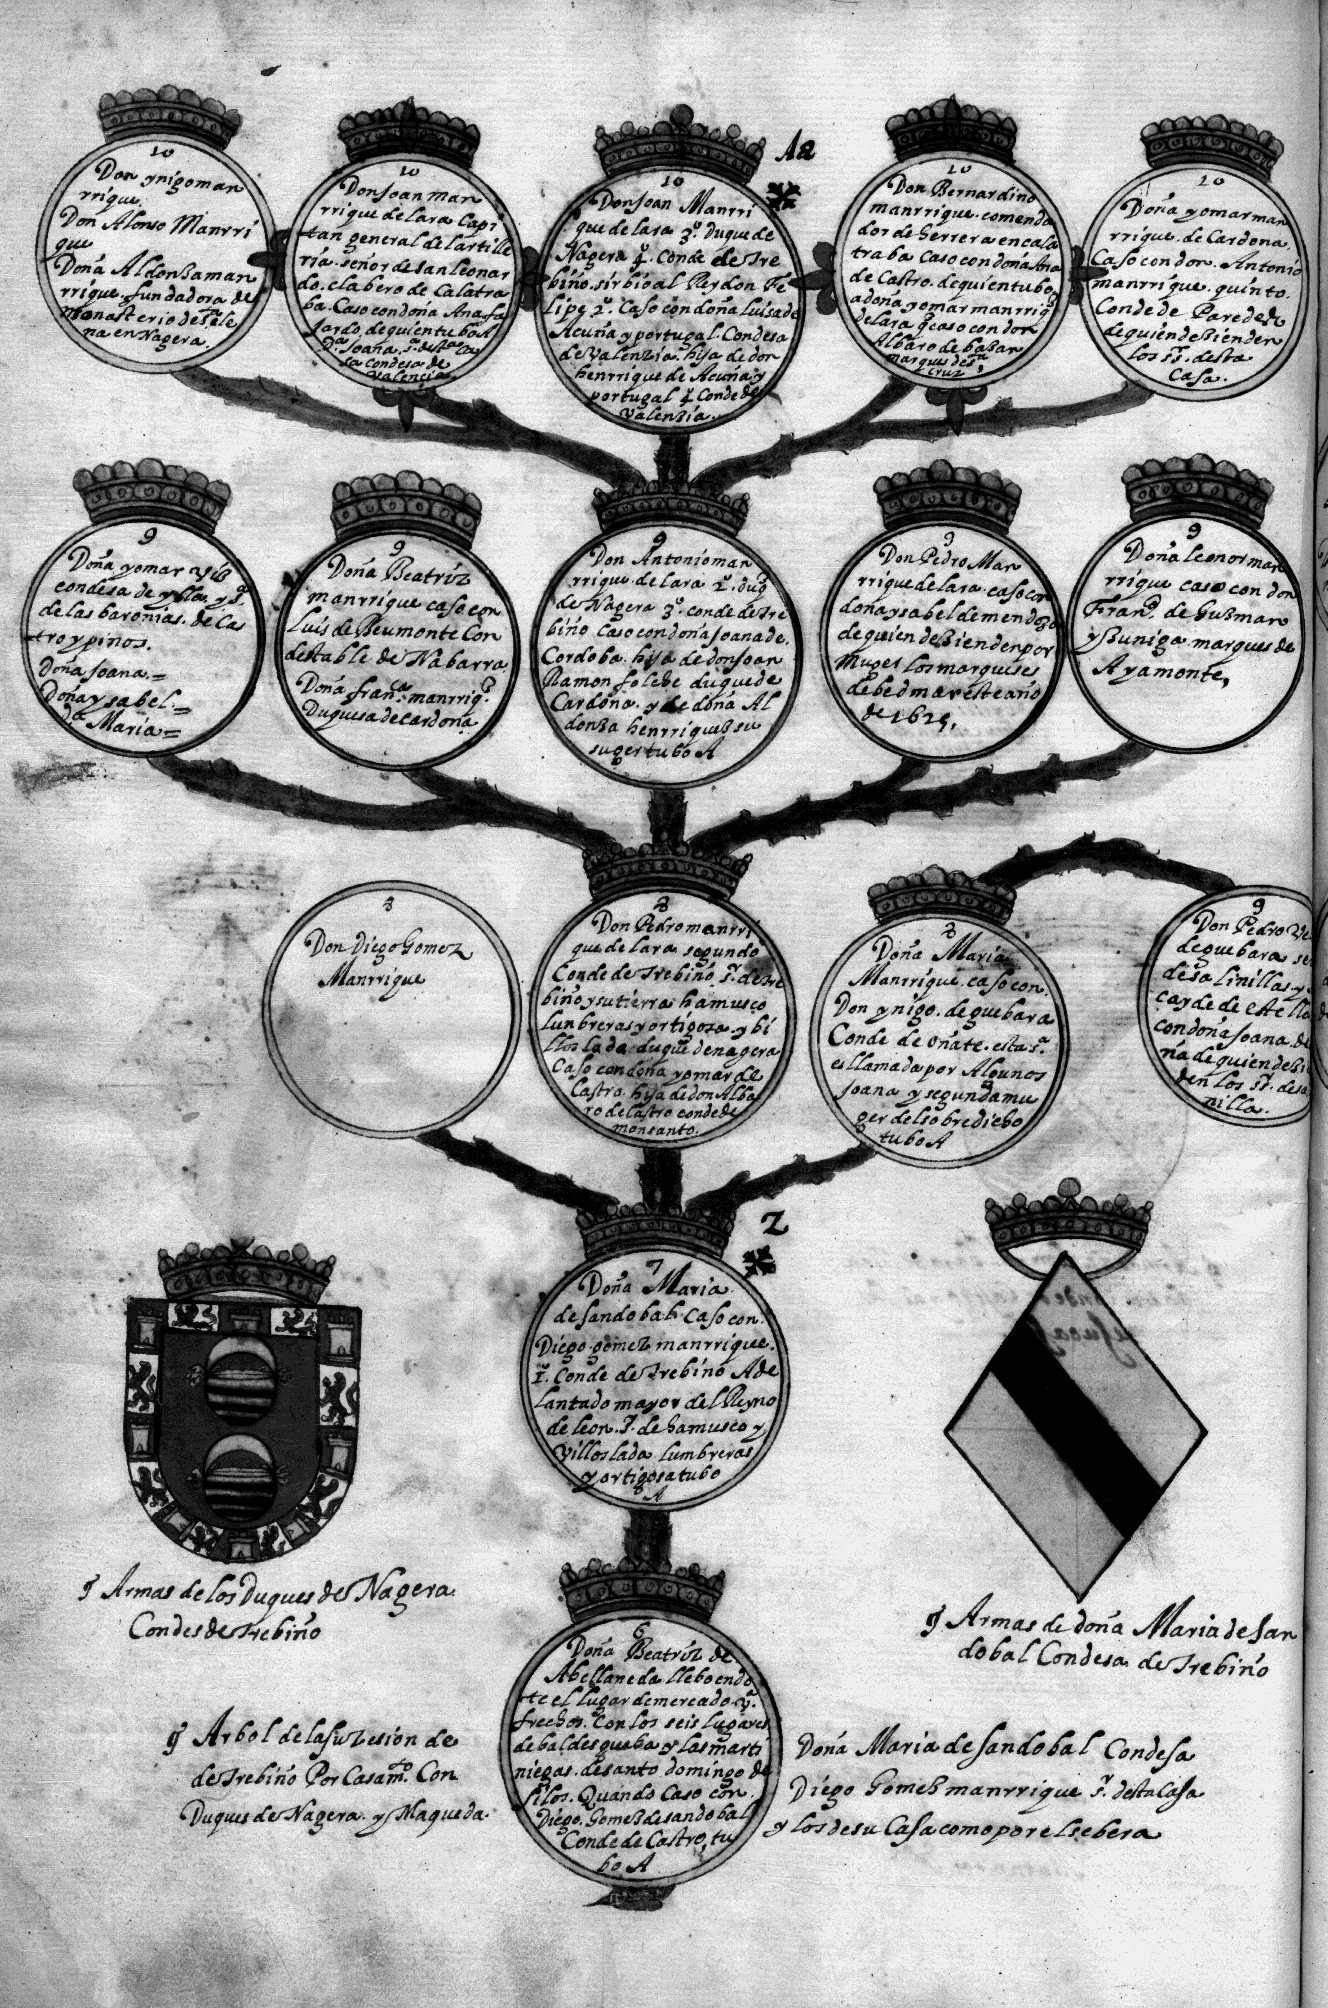 10
Don ynigo man
rrique.
Don Alonso Manrri
que
Doña Aldonza man
rrique fundadora del
monasterio de Sta ele
na en Nagera.
10
Don Joan man
rrique de lara Capi
tan general de lartille
ria. señor de san leonar
do. clabero de Calatra
ba. Caso con doña Ana fa
jardo de quien tubo A
Da. Joana
sa condesa de
Valencia
10
Don Joan Manrri
que de lara 3º. Duque de
Nagera 4º. Conde de tre
biño. sirbio al Rey don Fe
lipe 2º. Caso con doña luisa de
Acuña y portugal. Condesa
de Valenzia. hija de don
henrrique de Acuña y
portugal 4º Conde de
Valenzia.
Aa
10
Don Bernardino
manrrique. comenda
dor de herrera en cala
traba Caso con doña Ana
de Castro. de quien tubo
a doña yomar manrriq
de lara q caso con don
Albaro de bazan
marques de sta
cruz
10
Doña yomar man
rrique. de Cardona.
Caso con don. Antonio
manrrique. quinto.
Conde de Paredes
de quien Bienden
los ss. desta
Casa.
9
Doña yomar
condesa de ylla. y sª.
de las baronias. de Cas
tro y pinos.
Doña Joana.=
Doña ysabel.=
da Maria=
9
Doña Beatriz
manrrique caso con
Luis de Beumonte Con
destable de Nabarra
Doña franca. manrriq.
Duquesa de cardona.
9
Don Antonio man
rrique de lara 1º. duq
de Nagera 3º. conde de tre
biño Caso con doña Joana de.
Cordoba. hija de don Joan
Ramon folche duque de
Cardona. y de doña Al
donza henrriquez su
muger tubo A
9
Don Pedro Man
rrique de lara. caso con
doña ysabel de mendoza
de quien deBienden por
Muger los marqueses
de bedmar este año
de 1625,
9
Doña leonor man
rrique caso con don
Franco. de Guzman
y Zuniga. marques de
Ayamonte,
8
Don Diego Gomez
Manrrique
8
Don Pedro manrri
que de lara segundo
Conde de Trebiño. sr. de tre
biño y su tierra hamusco
lunbreras y ortigosa. y bi
llos lada. duque de nagera
Caso con doña yomar de
Castro. hija de don Alba
ro de Castro conde de
monsanto.
8
Doña Maria
Manrrique. caso con.
Don ynigo. de guebara
Conde de oñate. esta sª.
es llamada por Algunos
Joana y segunda mu
ger del sobredicho
tubo A
9
Don Pedro
de guebara se
de salinillas y
cayde de estella
con doña Joana de
ña de quien de Bi
den los ss. de sa
nilla.
7
Doña Maria
de sandobal. Caso con.
Diego gomez manrrique.
1º. Conde de trebino Ade
lantado mayor del Reyno
de leon. s. de hamusco y
Villoslada lumbreras
y ortigosa tubo
A
Z
¶ Armas de los Duques de Nagera.
Condes de trebiño
¶ Armas de doña Maria de san
dobal Condesa de Trebiño
6
Doña Beatriz de
Abellaneda llebo en do
te el lugar de mercado y
frechos. Con los seis lugares
de baldesgueba y las marti
niegas. de santo domingo de
silos. Quando caso con.
Diego. Gomez de sandobal
Conde de Castro, tu
bo A
¶ Arbol de la suzesion de
de trebiño Por Casamto. Con
Duques de Nagera. y Maqueda.
Doña Maria de sandobal Condesa
Diego Gomez manrrique sr. desta Casa
y los de su Casa como por el se bera